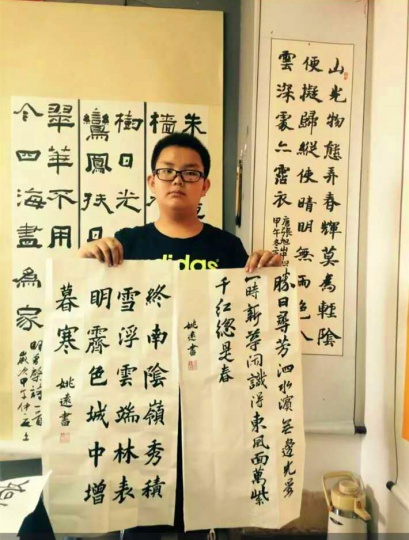 山光物態弄春輝莫為輕陰
便擬歸縱使晴明無雨色入
雲深處亦霑衣
唐張旭山
甲午冬
勝日尋芳泗水濱無邊光景
一時新等閑識得東風面萬紫
千紅總是春
姚遠書
終南陰嶺秀積
雪浮雲端林表
明霽色城中增
暮寒 姚遠書
朱
樹日光
鸞鳳扶日
翠華不用
令四海盡為家
adidas